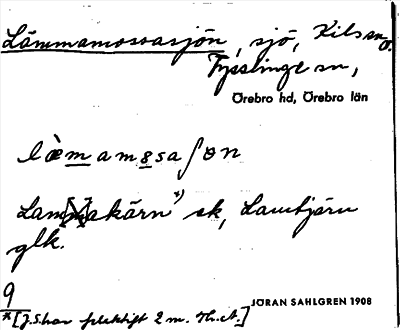 Lämmamossasjön, sjö, Kils sn o.
Tysslinge sn,
Örebro hd, Örebro län
læ̀mamo̲saʃøn
Lammakärn *) sk, Lamtjärn
glk.
9
*[J.S. har plektift 2 m. Th.ct.]
JÖRAN SAHLGREN 1908